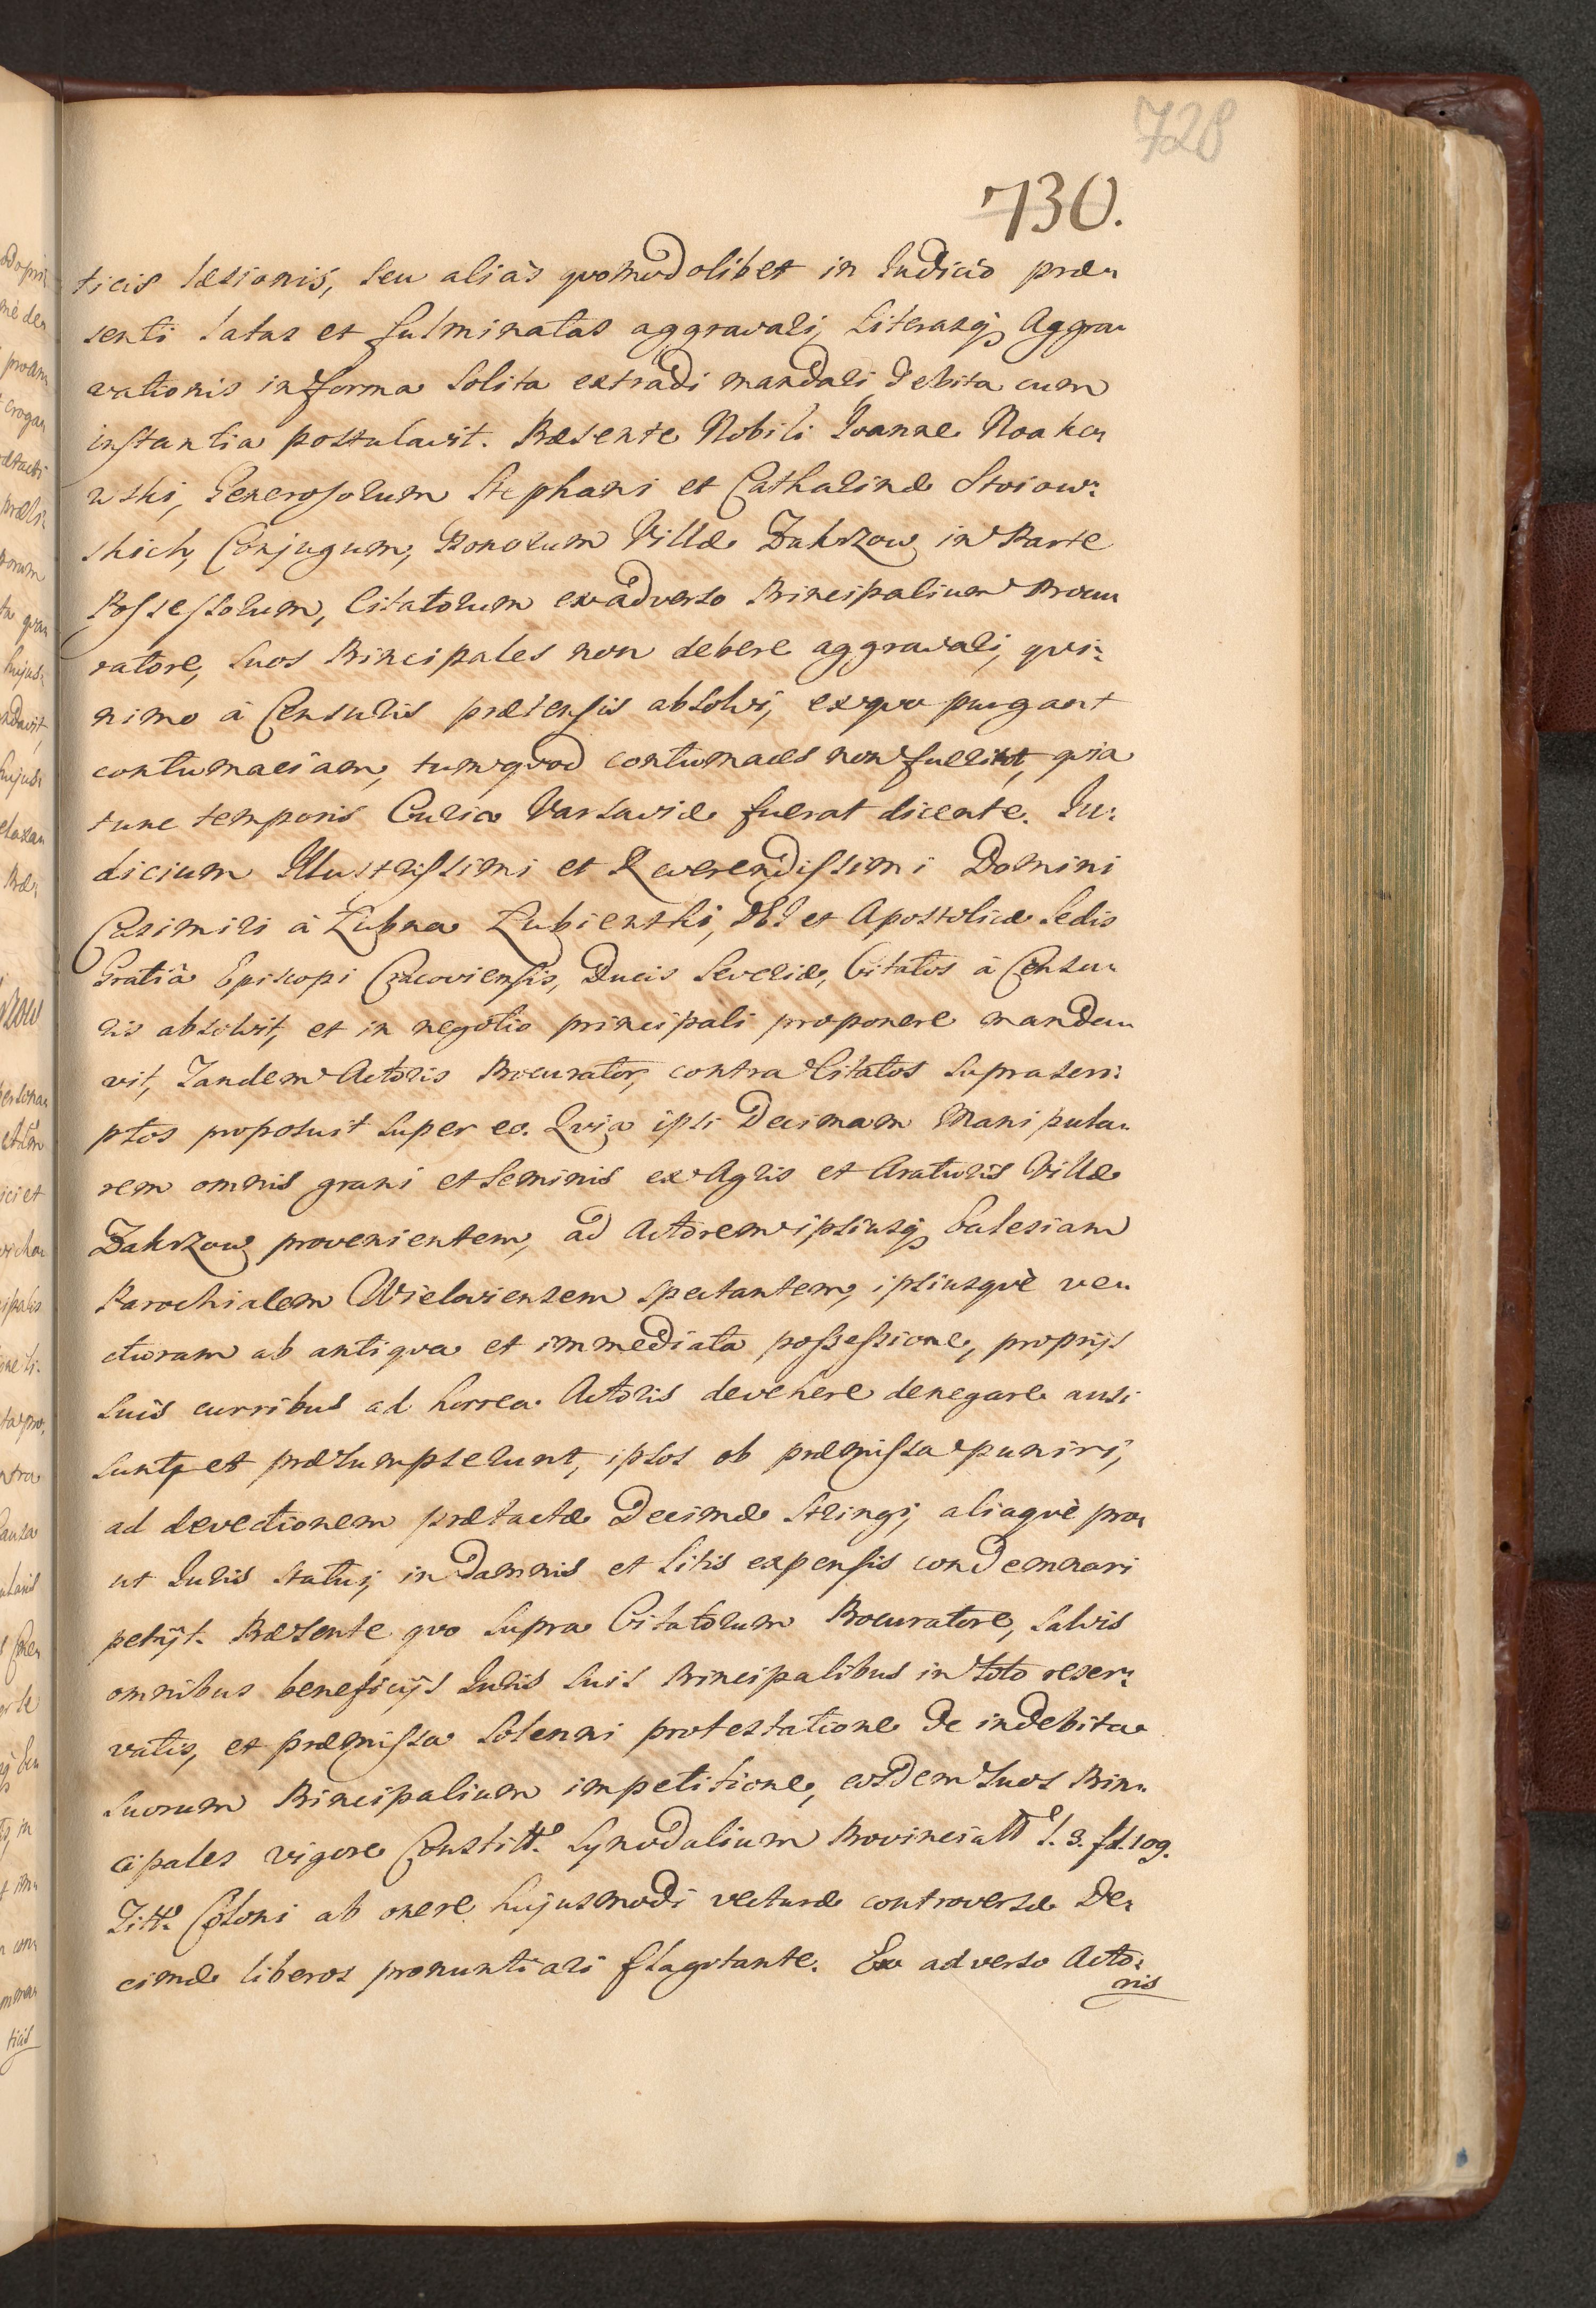 728
730.
ticis læsionis, seu alias quomodolibet in Judicio præ„
senti latas et fulminatas aggravari, Literasq; Aggra„
vationis in forma solita extradi mandari debita cum
instantia postulavit. Præsente Nobili Joanne Noako„
wski, Generosorum Stephani et Catharinæ Stoiow:
skich, Conjugum, Bonorum Villæ Zakrzow in Parte
Possessorum, Citatorum ex adverso Principalium Procu„
ratore, suos Principales non debere aggravari, qui:
nimo à Censuris prætensis absolvi, ex quo purgant
contumaciam, tum quod contumaces non fuerint, quia
tunc temporis Curia Varsaviæ fuerat dicente. Ju:
dicium Illustrissimi et Reverendissimi Domini
Casimiri à Łubna Łubienski, DEI et Apostolicæ Sedis
Gratia Episcopi Cracoviensis, Ducis Severiæ, Citatos à Censu„
ris absolvit, et in negotio principali proponere manda„
vit, Tandem Actoris Procurator, contra Citatos suprascri:
ptos proposuit super eo. Quia ipsi Decimam Manipula„
rem omnis grani et seminis ex Agris et Araturis Villæ
Zakrzow provenientem, ad Actorem ipsiusq; Eclesiam
Parochialem Wieloviensem spectantem, ipsiusquè ve„
cturam ab antiqua et immediata possessione, proprijs
suis curribus ad horrea Actoris devehere denegare ausi
sunt, et præsumpserunt, ipsos ob præmissa puniri,
ad devectionem prætactæ Decimæ stringi, aliaquè pro„
ut Juris statui, in damnis et litis expensis condemnari
petijt. Præsente quo supra Citatorum Procuratore, salvis
omnibus beneficijs Juris suis Principalibus in toto reser„
vatis, et præmissa solenni protestatione de indebita
suorum Principalium impetitione, eosdem suos Prin„
cipales vigore Constitt. Synodalium Provinciall l. 3. fol. 109.
Titt. Coloni ab onere hujusmodi vecturæ controversæ De„
cimæ liberos pronuntiari flagitante. Ex adverso Acto:
ris